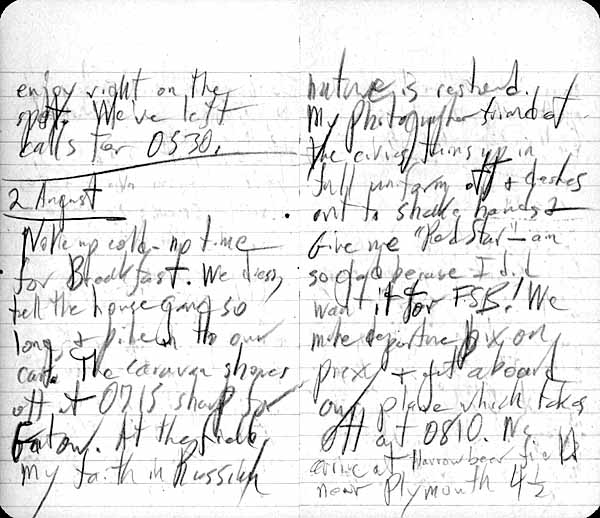 enjoy right on the
spot. We've left
calls for 0530.
2 August
Woke up cold - no time
for Breakfast. We dress,
tell the house gang so
long, & pile in to our
cars. The caravan shoves
off at 0715 sharp for
Gatow. At the field,
my faith in Russian
nature is restored.
My Photographer friend of
the civies turns up in
full uniform & dashes
out to shake hands &
Give me "Red Star" - am
so glad because I did
want it for FSB! We
make departure pix on
prexy + get aboard
our plane which takes
off at 0810. We
arrive at Harrowbeer field
near Plymouth 4½